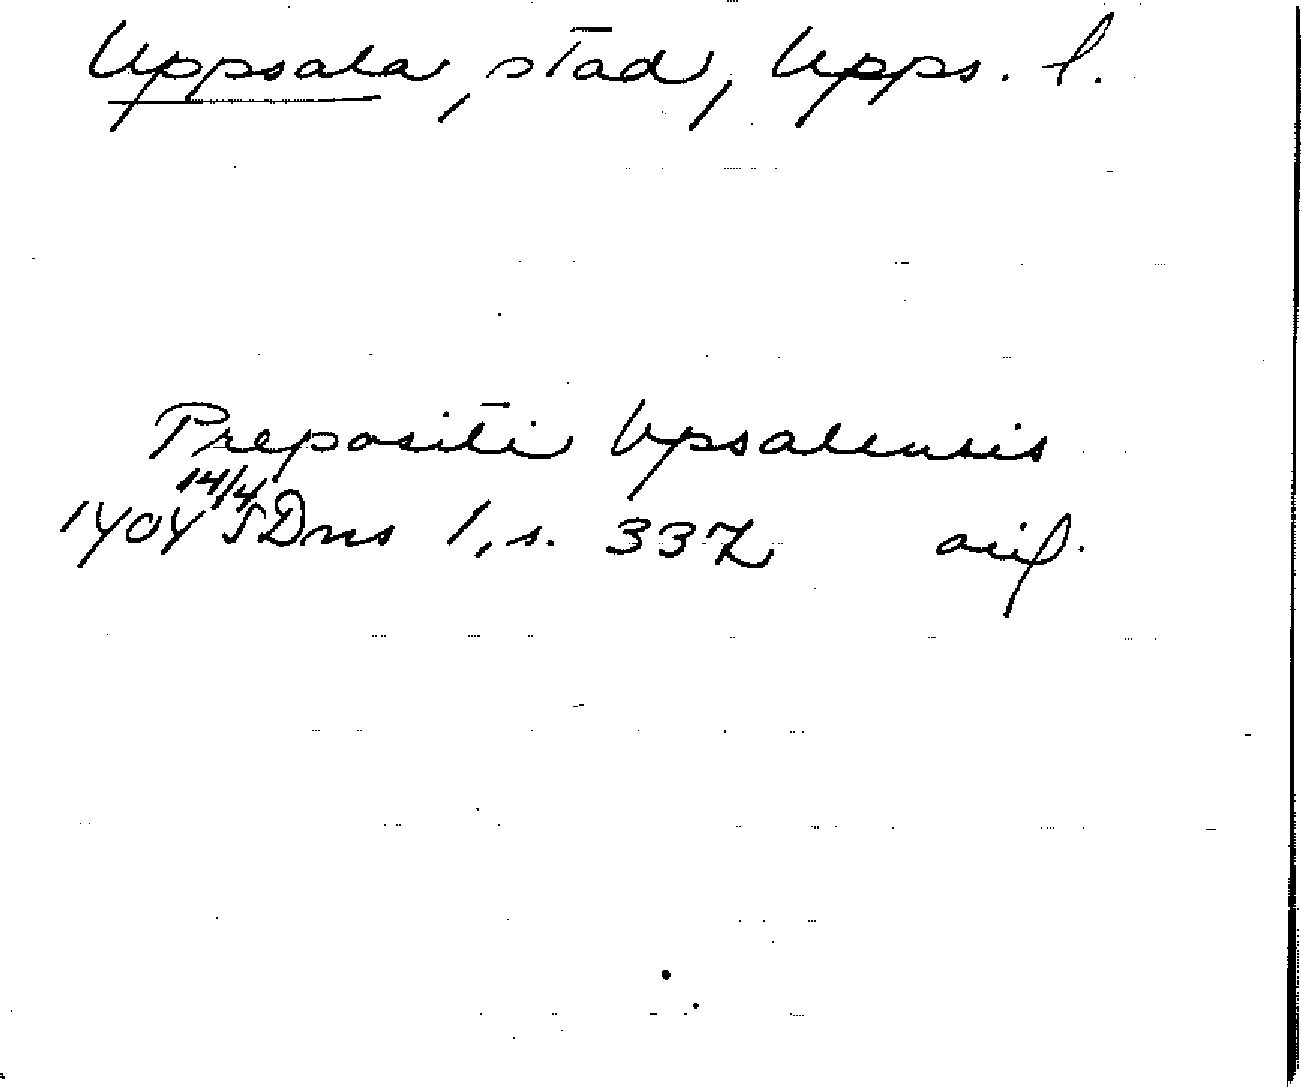 Uppsala, stad, Upps. l.
Prepositi Vpsalensis
1404 14/4 SDns 1, s. 332 avf.